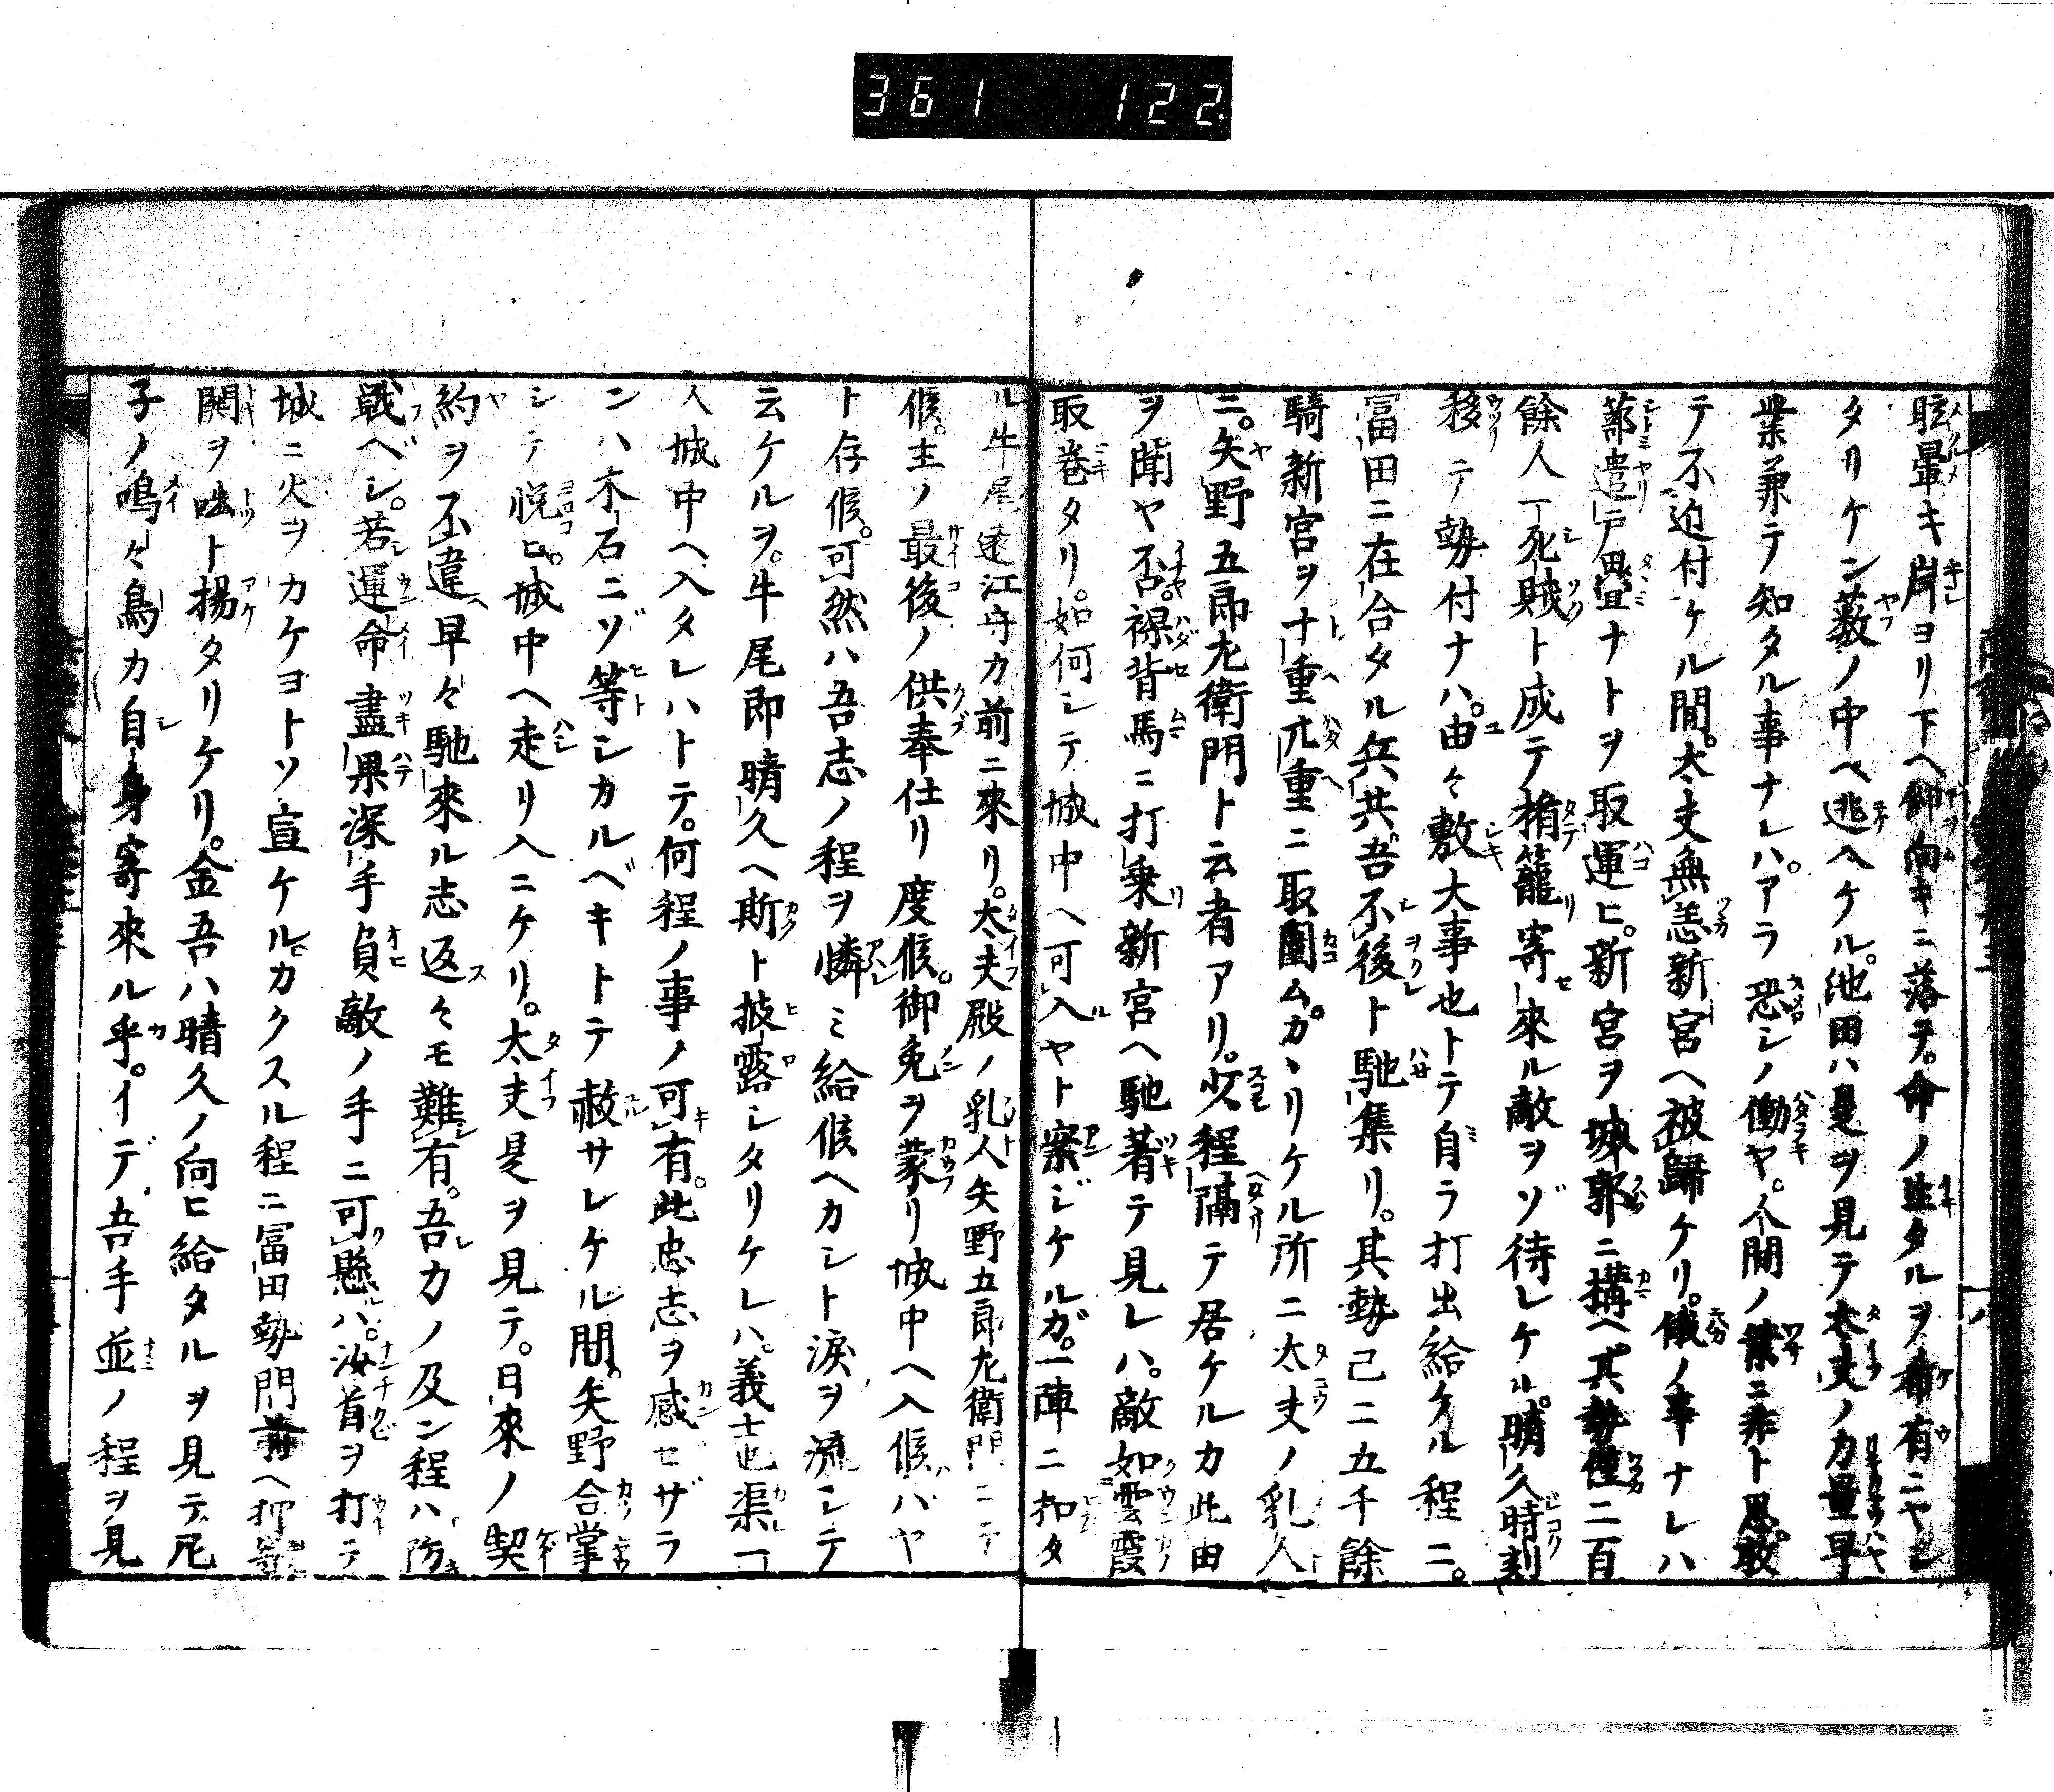 361 122
眩暈キ岸ヨリ下ヘ仰向キニ落テ。命ノ生タルヲ希有ニヤシ
タリケン薮ノ中ヘ逃ヘケル。池田ハ是ヲ見テ太夫ノ力量早
業兼テ知タル事ナレハ。アラ恐シノ働ヤ。人間ノ業ニ非ト思。敢
テ不近付ケル間。太夫無恙新宮ヘ被歸ケリ。俄ノ事ナレハ
蔀遣戸畳ナトヲ取運ヒ。新宮ヲ城郭ニ搆ヘ。其勢僅二百
餘人丁死賊ト成テ楯籠寄來ル敵ヲゾ待レケル。晴久時刻
移テ勢付ナハ。由々敷大事也トテ自ラ打出給ケル程ニ。
冨田ニ在合タル兵共。吾不後ト馳集リ。其勢已ニ五千餘
騎新宮ヲ十重兀重ニ取圍ム。カヽリケル所ニ太夫ノ乳人
ニ。矢野五郎左衛門ト云者アリ。少程隔テ居ケルカ此由
ヲ聞ヤ否。裸背馬ニ打乗新宮ヘ馳著テ見レハ。敵如雲霞
取巻タリ。如何シテ城中ヘ可入ヤト案ジケルガ。一陣ニ扣タ
ル牛尾遠江守カ前ニ來リ。太夫殿ノ乳人矢野五郎左衛門ニテ
候。主ノ最後ノ供奉仕リ度候。御免ヲ蒙リ城中ヘ入候ハバヤ
ト存候。可然ハ吾志ノ程ヲ憐ミ給候ヘカシト涙ヲ流シテ
云ケルヲ。牛尾即晴久ヘ斯ト披露シタリケレハ。義士也渠一
人城中ヘ入タレハトテ。何程ノ事ノ可有。此忠志ヲ感セザラ
ンハ木石ニゾ等シカルベキトテ赦サレケル間。矢野合掌
シテ悦ヒ。城中ヘ走リ入ニケリ。太夫是ヲ見テ。日來ノ契
約ヲ不違早々馳來ル志返々モ難有。吾力ノ及ン程ハ防
戦ベシ。若運命盡果深手負敵ノ手ニ可懸ハ。汝首ヲ打テ
城ニ火ヲカケヨトソ宣ケルカクスル程ニ冨田勢門前ヘ押寄
鬨ヲ咄ト揚タリケリ。金吾ハ晴久ノ向ヒ給タルヲ見テ尼
子ノ鳴々鳥カ自身寄來ル乎。イデ吾手並ノ程ヲ見